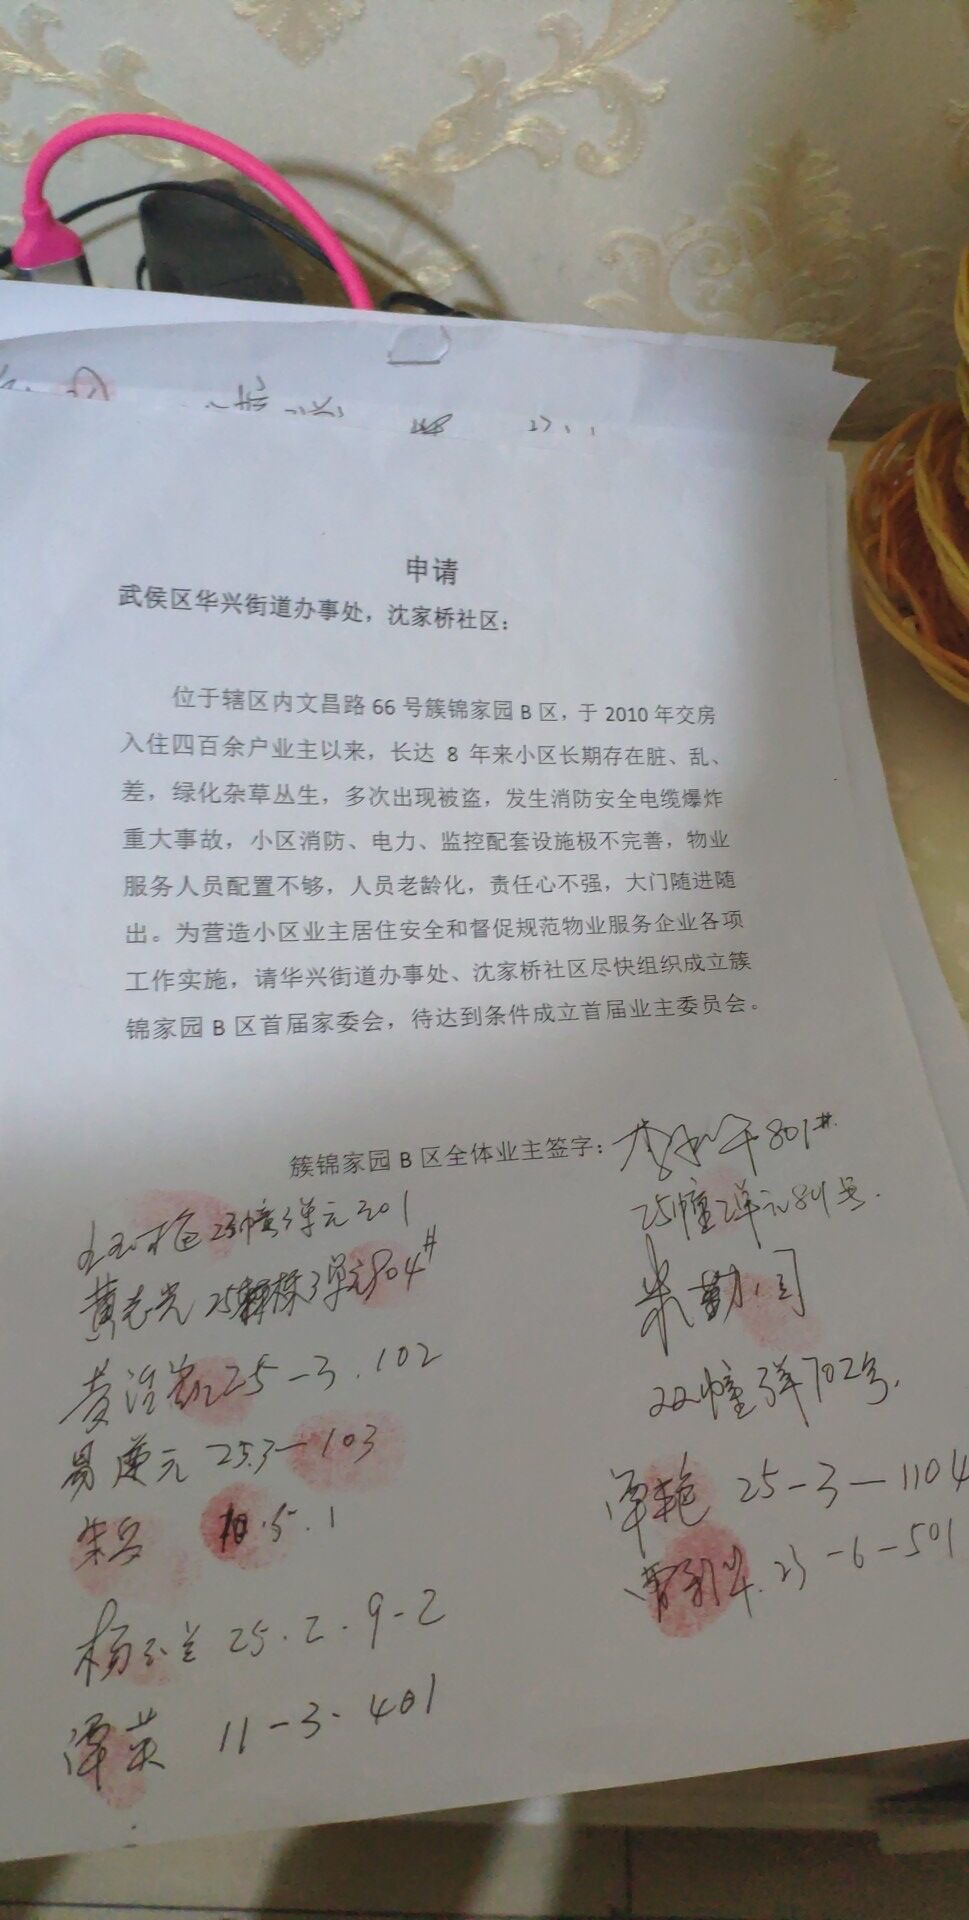 申请
武侯区华兴街道办事处，沈家桥社区：
位于辖区内文昌路 66 号簇锦家园 B 区，于 2010 年交房
入住四百余户业主以来，长达 8 年来小区长期存在脏、乱、
差，绿化杂草丛生，多次出现被盗，发生消防安全电缆爆炸
重大事故，小区消防、电力、监控配套设施极不完善，物业
服务人员配置不够，人员老龄化，责任心不强，大门随进随
出。为营造小区业主居住安全和督促规范物业服务企业各项
工作实施，请华兴街道办事处、沈家桥社区尽快组织成立簇
锦家园 B 区首届家委会，待达到条件成立首届业主委员会。
簇锦家园 B 区全体业主签字： 801#
25幢2单元801号.
23幢3单元201
黄志光 25 3单元804#
朱勤
22幢3单702号.
25-3.102
易莲元 25.3-103
谭艳 25-3-1104
朱 10.5.1
曾 23-6-501
杨 25.2.9-2
谭英 11-3-401